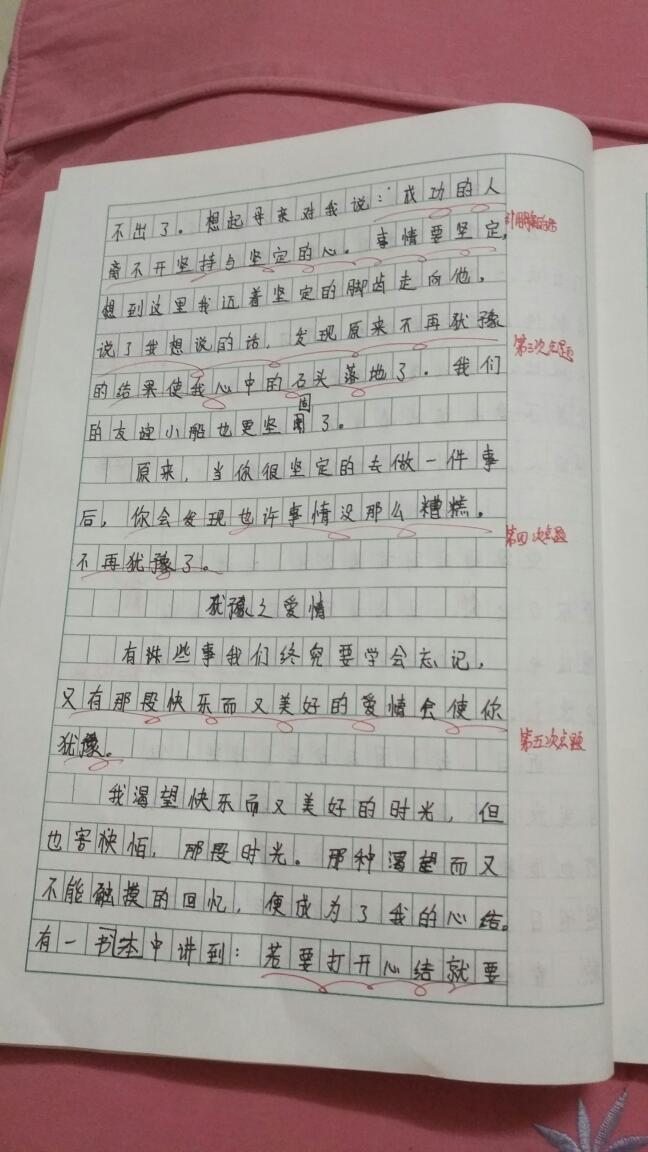 不出了。想起母亲对我说：成功的人
离不开坚持与坚定的心。事情要坚定，
想到这里我迈着坚定的脚步走向他，
说了我想说的话，发现原来不再犹豫
第三次点题
的结果使我心中的石头落地了。我们
固
的友谊小船也更坚了。
原来，当你很坚定的去做一件事
后，你会发现也许事情没那么糟糕，
第四次点题
不再犹豫了。
犹豫之爱情
有些事我们终究要学会忘记，
又有那段快乐而又美好的爱情会使你
第五次点题
犹豫。
我渴望快乐而又美好的时光，但
也害怕，那段时光。那种渴望而又
不能融摸的回忆，便成为了我的心结。
有一书本中讲到：若要打开心结就要